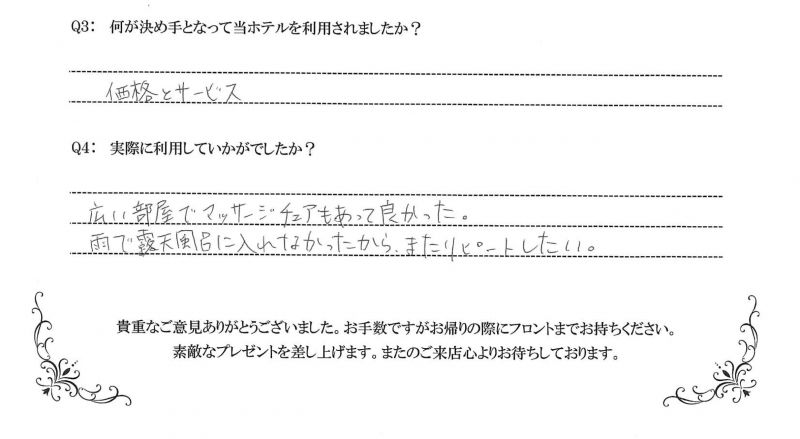 Q3： 何が決め手となって当ホテルを利用されましたか？
価格とサービス
Q4： 実際に利用していかがでしたか？
広い部屋でマッサージチェアもあって良かった。
雨で露天風呂に入れなかったから、またリピートしたい。
貴重なご意見ありがとうございました。お手数ですがお帰りの際にフロントまでお持ちください。
素敵なプレゼントを差し上げます。またのご来店心よりお待ちしております。